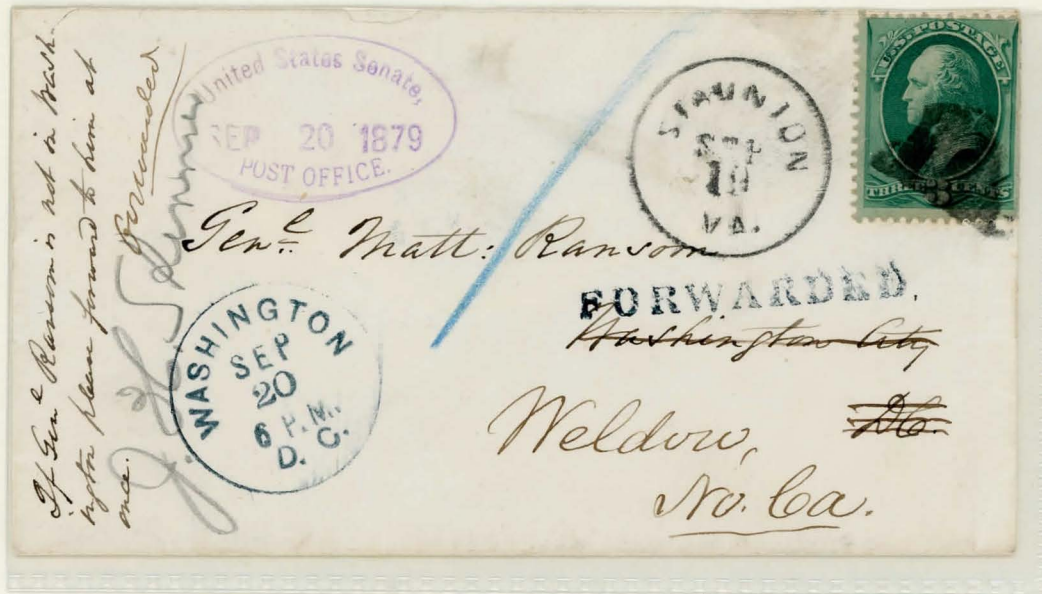 If Genl Ransom is not in Wash-
ington please forward to him at
once.
Forwarded
United States Senate,
SEP 20 1879
POST OFFICE.
STAUNTON
SEP
19
VA.
U.S. POSTAGE
THREE 3 CENTS
Genl. Matt: Ransom
FORWARDED.
Washington City
DC.
WASHINGTON
SEP
20
6 P.M.
D. C.
Weldon,
No. Ca.